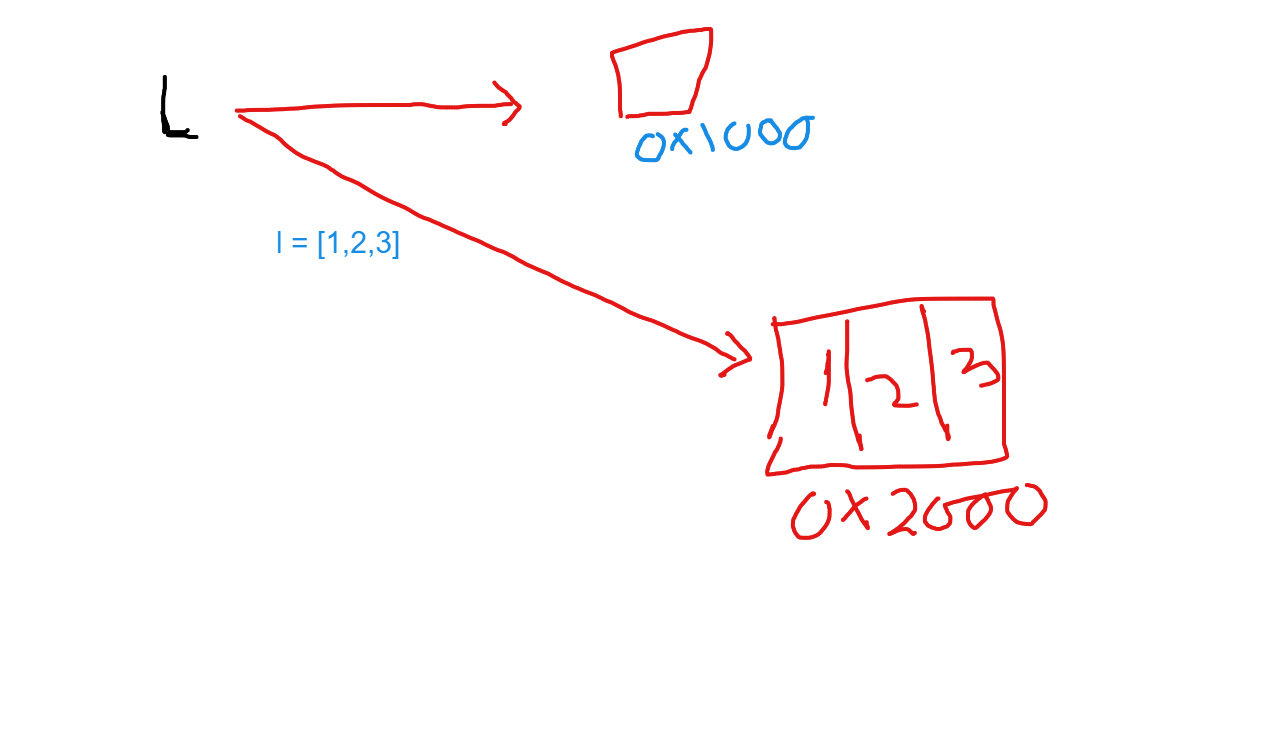 L
0x1000
l = [1,2,3]
1 2 3
0x2000